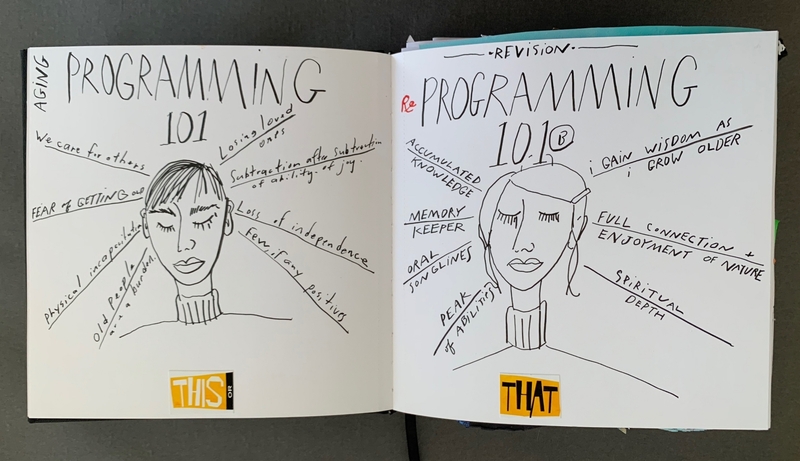 AGING
PROGRAMMING
101
We care for others
Losing loved
ones
Subtraction after subtraction
of ability. of joy.
FEAR of GETTING old
Loss of independence
Few, if any positives
physical incapacitation
Old people
are a burden.
THIS OR
-REVISION-
Re PROGRAMMING
101 B
ACCUMULATED
KNOWLEDGE
i GAIN WISDOM AS
i GROW OLDER
MEMORY
KEEPER
FULL CONNECTION +
ENJOYMENT OF NATURE
ORAL
SONGLINES
PEAK
of ABILITIES
SPIRITUAL
DEPTH
THAT